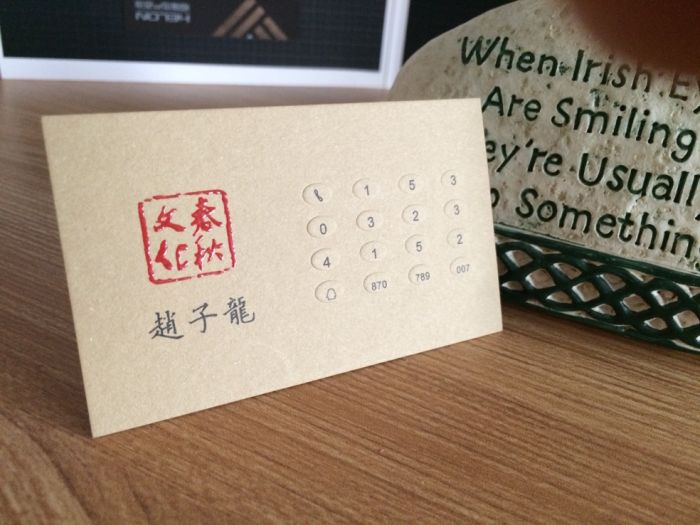 HELON
春秋
文化
趙子龍
1 5 3
0 3 2 3
4 1 5 2
870 789 007
When Irish
Are Smiling
ey're Usuall
Somethin